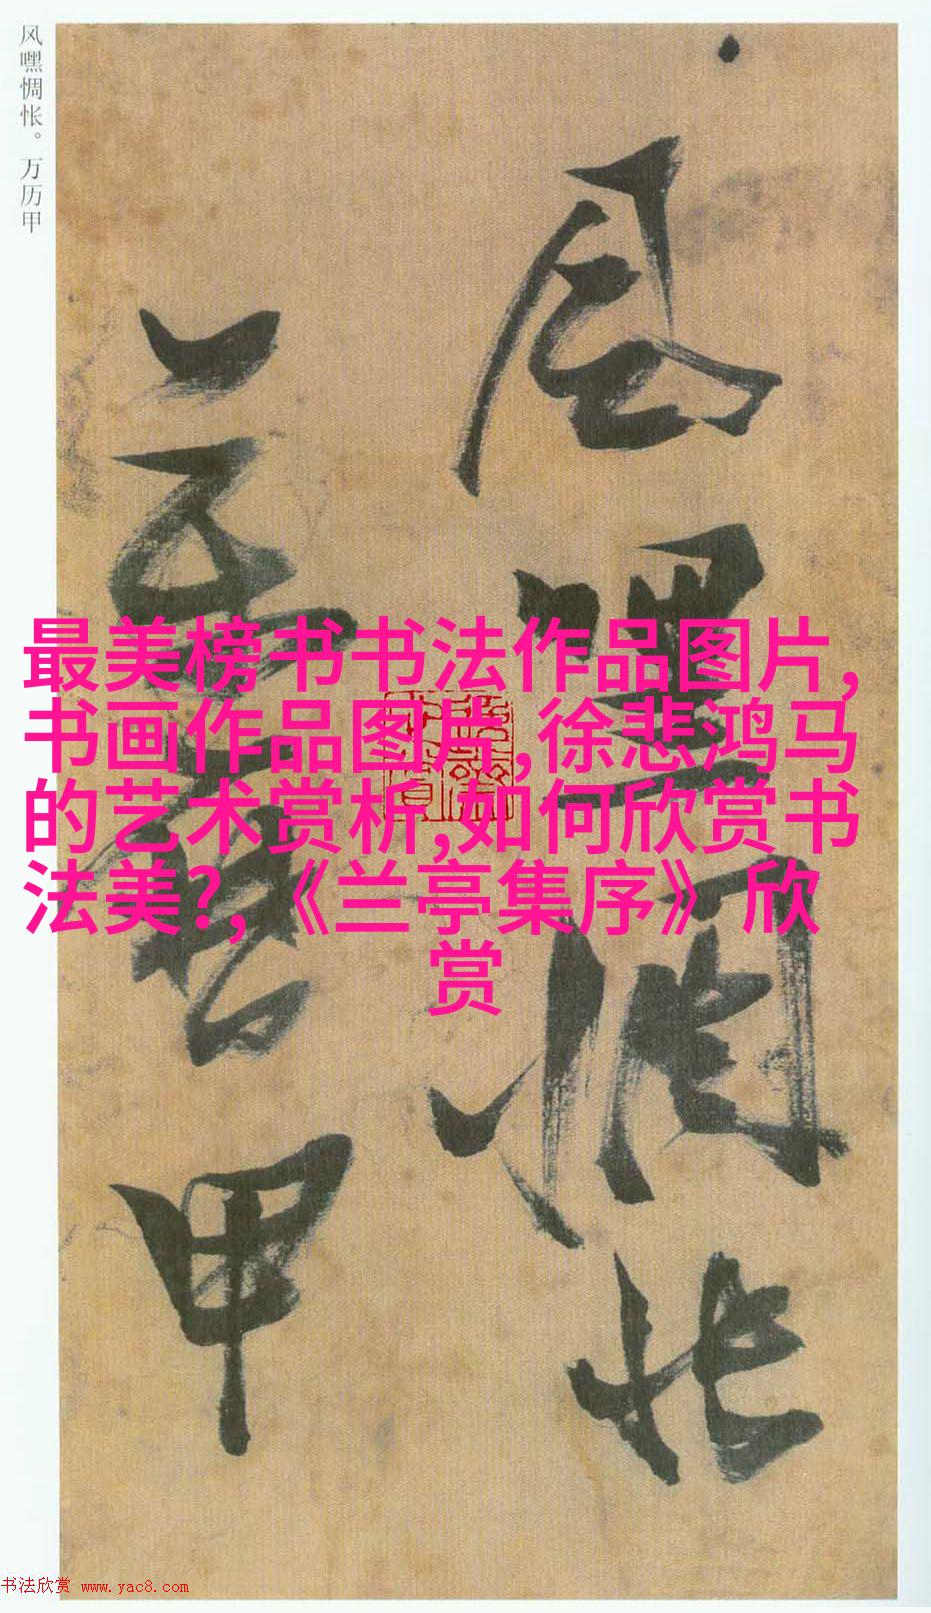 风嘿惆怅。万历甲
风嘿惆怅
万历甲
最美榜书书法作品图片,
书画作品图片,徐悲鸿马
的艺术赏析,如何欣赏书
法美?,《兰亭集序》欣
赏
书法欣赏 www.yac8.com